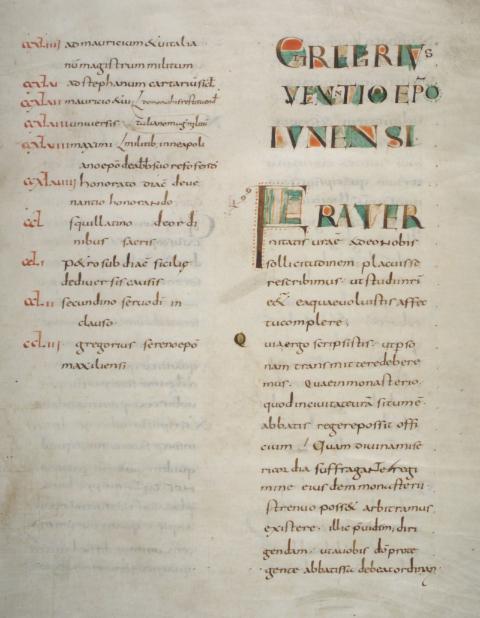 ccxliiii ad mauricium & vitalia
nū magistrum militum
ccxlv ad stephanum cartariū sicił
ccxlvi mauricio &
ccxlvii universis
ccxlviii maximi militib, inneapoli
ccxlviiii honorato diac̄ deve
nantio honorando
ccl squillatino de ordi
nibus sacris
ccli p&ro subdiac̄ sicilię
dediversis causis
cclii secundino servo dī in
clauso
ccliii gregorius sereno ep̄o
maxiliensi
GREGORIUS
VENANTIO EP̄O
LUNENSI
FRATER
nitatis uræ adeo nobis
sollicitudinem placuisse
rescribimus · ut studuri
&& ea quae voluistis affec
tu complere;
Quia ergo scripsistis · ut p̄so
nam transmittere debere
mus · Quae in monasterio
quod in civitate ur̄a situm ē
abbatis regere possit offi
cium; Quam divina mise
ricordia suffragante regi
mine eiusdem monasterii
strenuo posse arbitramur
existere · illic p̄vidim, diri
gendam · ut a vobis dō prote
gente abbatissa debeat ordinari